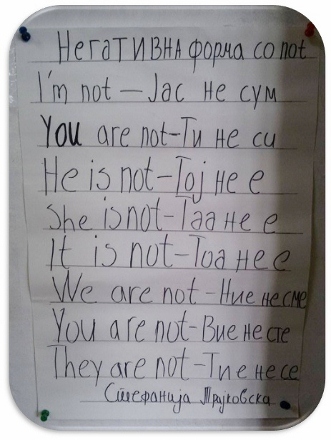 Негативна форма со not
I'm not – Јас не сум
You are not – Ти не си
He is not – Тој не е
She is not – Таа не е
It is not – Тоа не е
We are not – Ние не сме
You are not – Вие не сте
They are not – Тие не се
Стефанија Трајковска